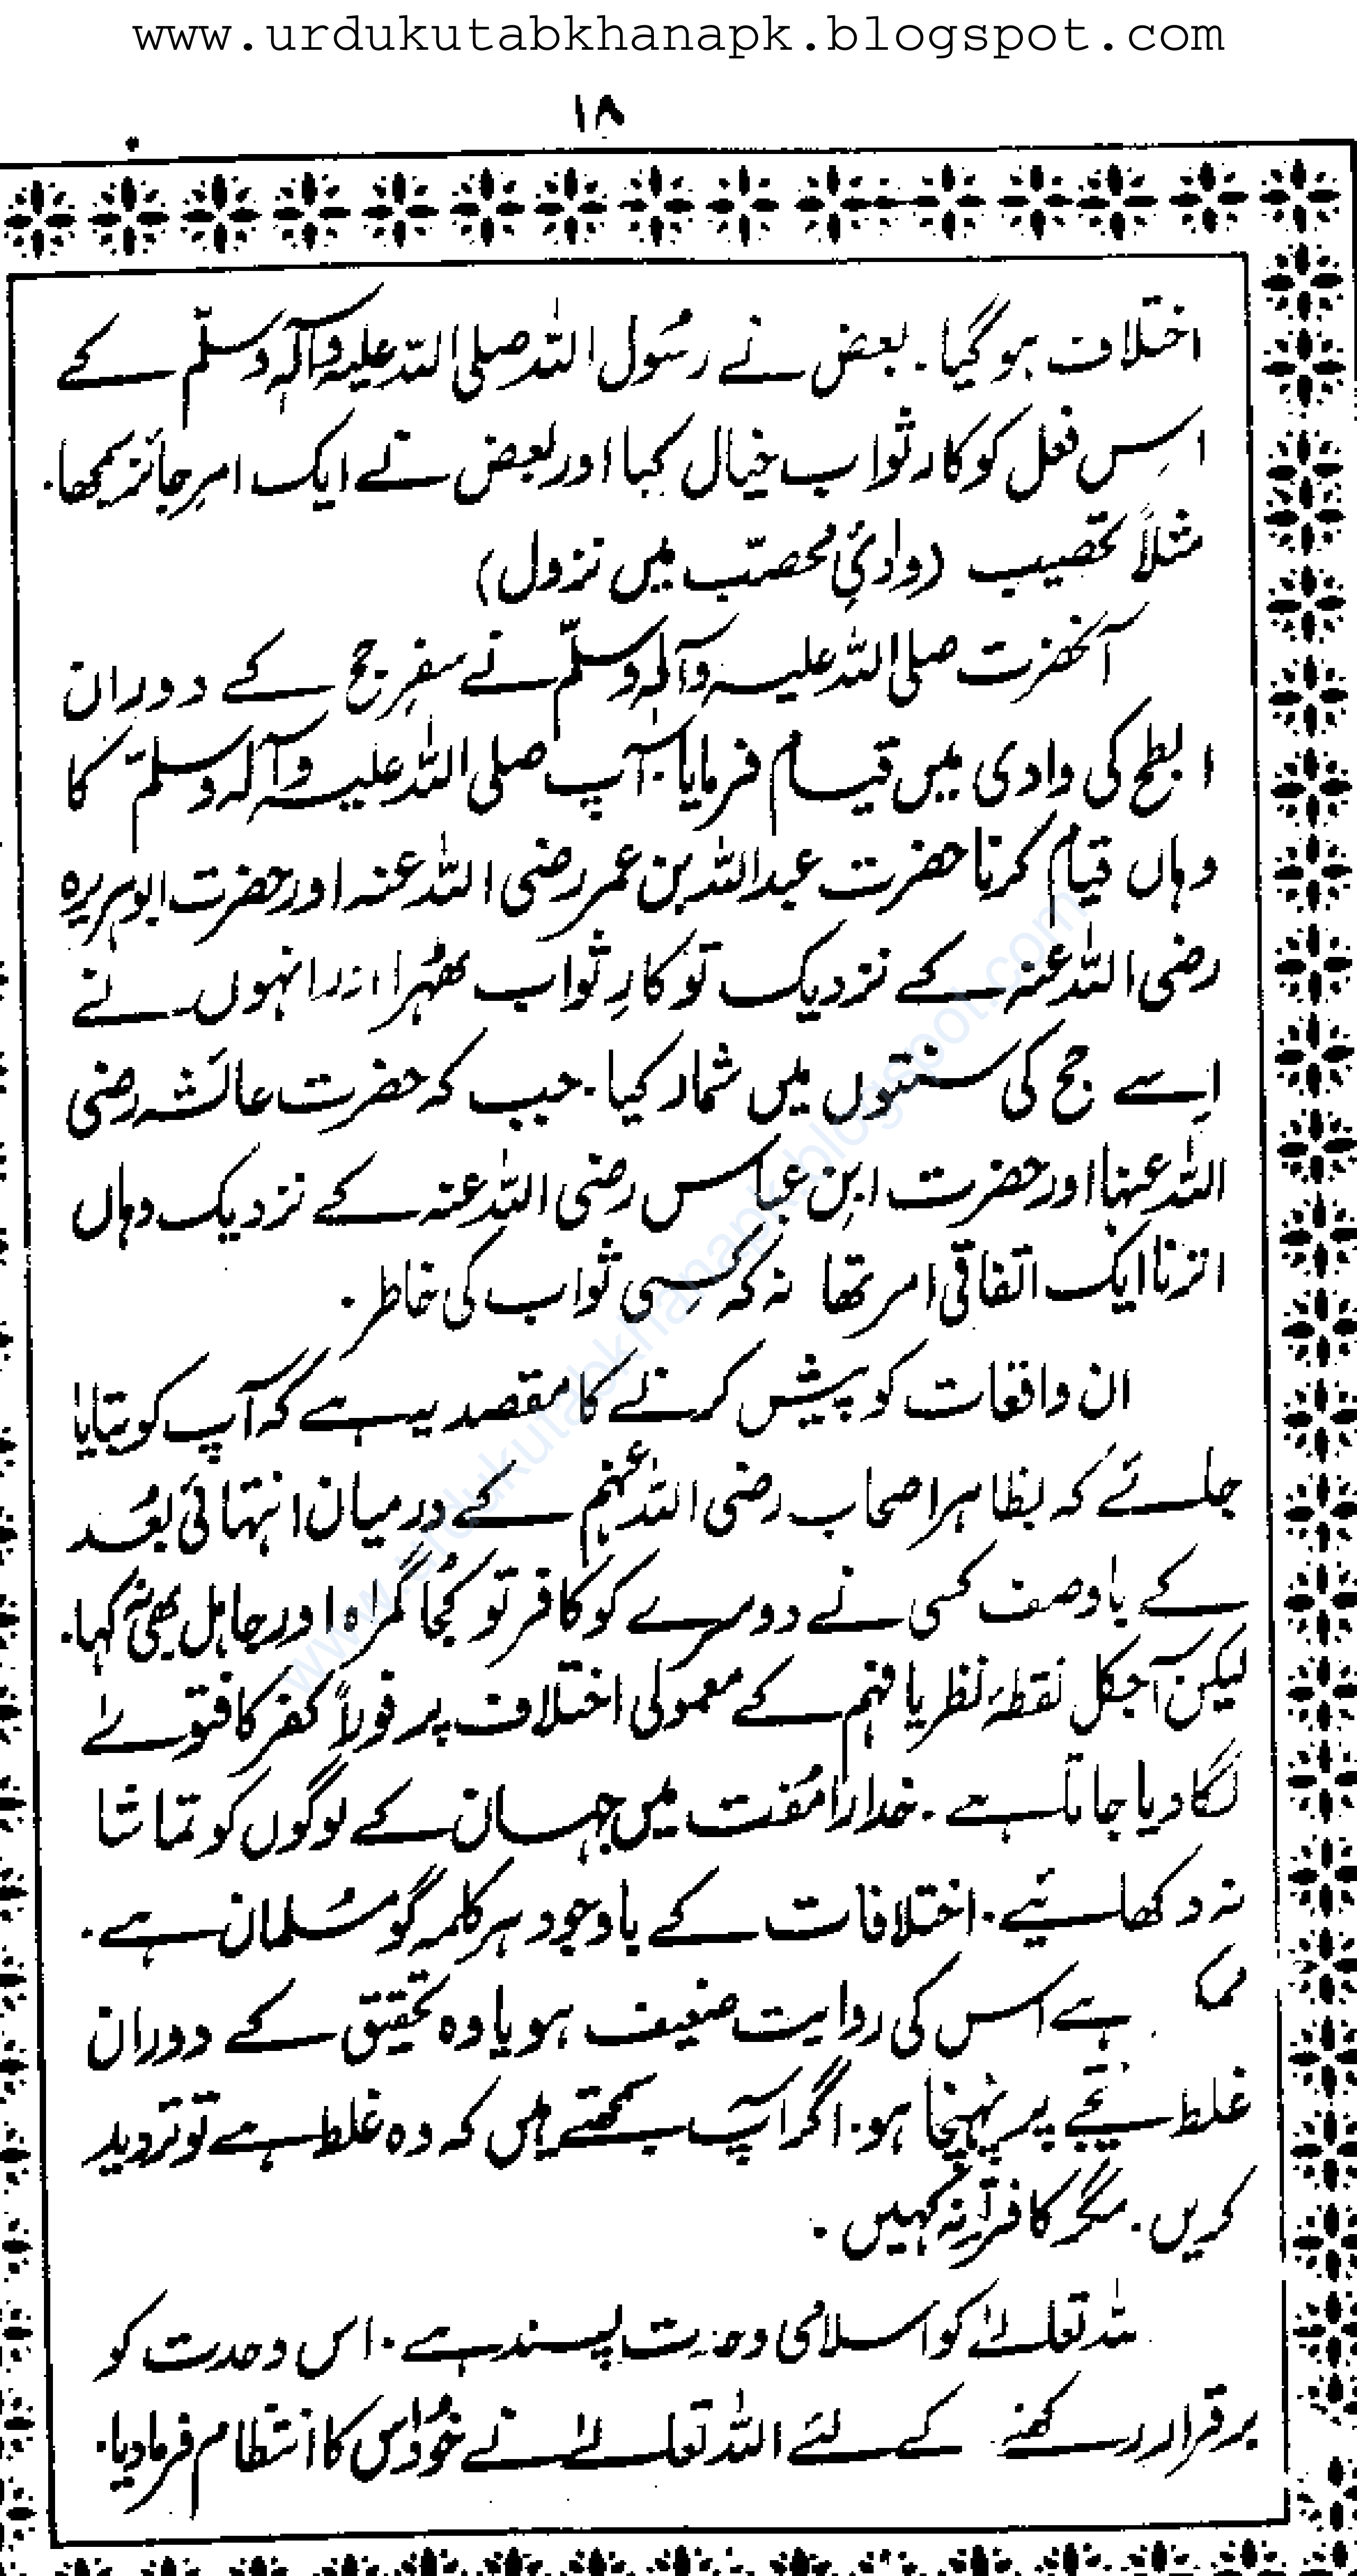 www.urdukutabkhanapk.blogspot.com
۱۸
اختلاف ہوگیا۔ بعض نے رسُول اللہ صلی اللہ علیہ وآلہٖ وسلّم کے
اِس فعل کو کار ثواب خیال کیا اور بعض نے ایک امرِ جائز سمجھا۔
مثلاً تحصیب (وادئِ محصّب میں نزول)
آنحضرت صلی اللہ علیہ وآلہٖ وسلّم نے سفرِ حج کے دوران
ابطح کی وادی میں قیام فرمایا۔ آپ صلی اللہ علیہ وآلہ وسلم کا
وہاں قیام کرنا حضرت عبداللہ بن عمر رضی اللہ عنہ اور حضرت ابوہریرہ
رضی اللہ عنہ کے نزدیک تو کارِ ثواب ٹھہرا اور انہوں نے
اِسے حج کی سنتوں میں شمار کیا۔ جب کہ حضرت عائشہ رضی
اللہ عنہا اور حضرت ابنِ عباس رضی اللہ عنہ کے نزدیک وہاں
اترنا ایک اتفاقی امر تھا نہ کہ کسِی ثواب کی خاطر۔
ان واقعات کو پیش کرنے کا مقصد یہ ہے کہ آپ کو بتایا
جائے کہ بظاہر اصحاب رضی اللہ عنہم کے درمیان انتہائی بُعد
کے باوصف کسی نے دوسرے کو کافر تو کُجا گمراہ اور جاہل بھی نہ کہا۔
لیکن آجکل نقطۂ نظر یا فہم کے معمولی اختلاف پر فوراً کفر کا فتوےٰ
لگا دیا جاتا ہے۔ خدارا مُفت میں جہان کے لوگوں کو تماشا
نہ دکھائیے۔ اختلافات کے باوجود ہر کلمہ گو مُسلمان ہے۔
ہے اس کی روایت ضعیف ہو یا وہ تحقیق کے دوران
غلط نتیجے پر پہنچا ہو۔ اگر آپ سمجھتے ہیں کہ وہ غلط ہے تو تردید
کریں۔ مگر کافر نہ کہیں۔
تعالےٰ کو اسلامی وحدت پسند ہے۔ اس وحدت کو
برقرار رکھنے کے لئے اللہ تعالےٰ نے خُود اس کا انتظام فرما دیا۔
www.urdukutabkhanapk.blogspot.com